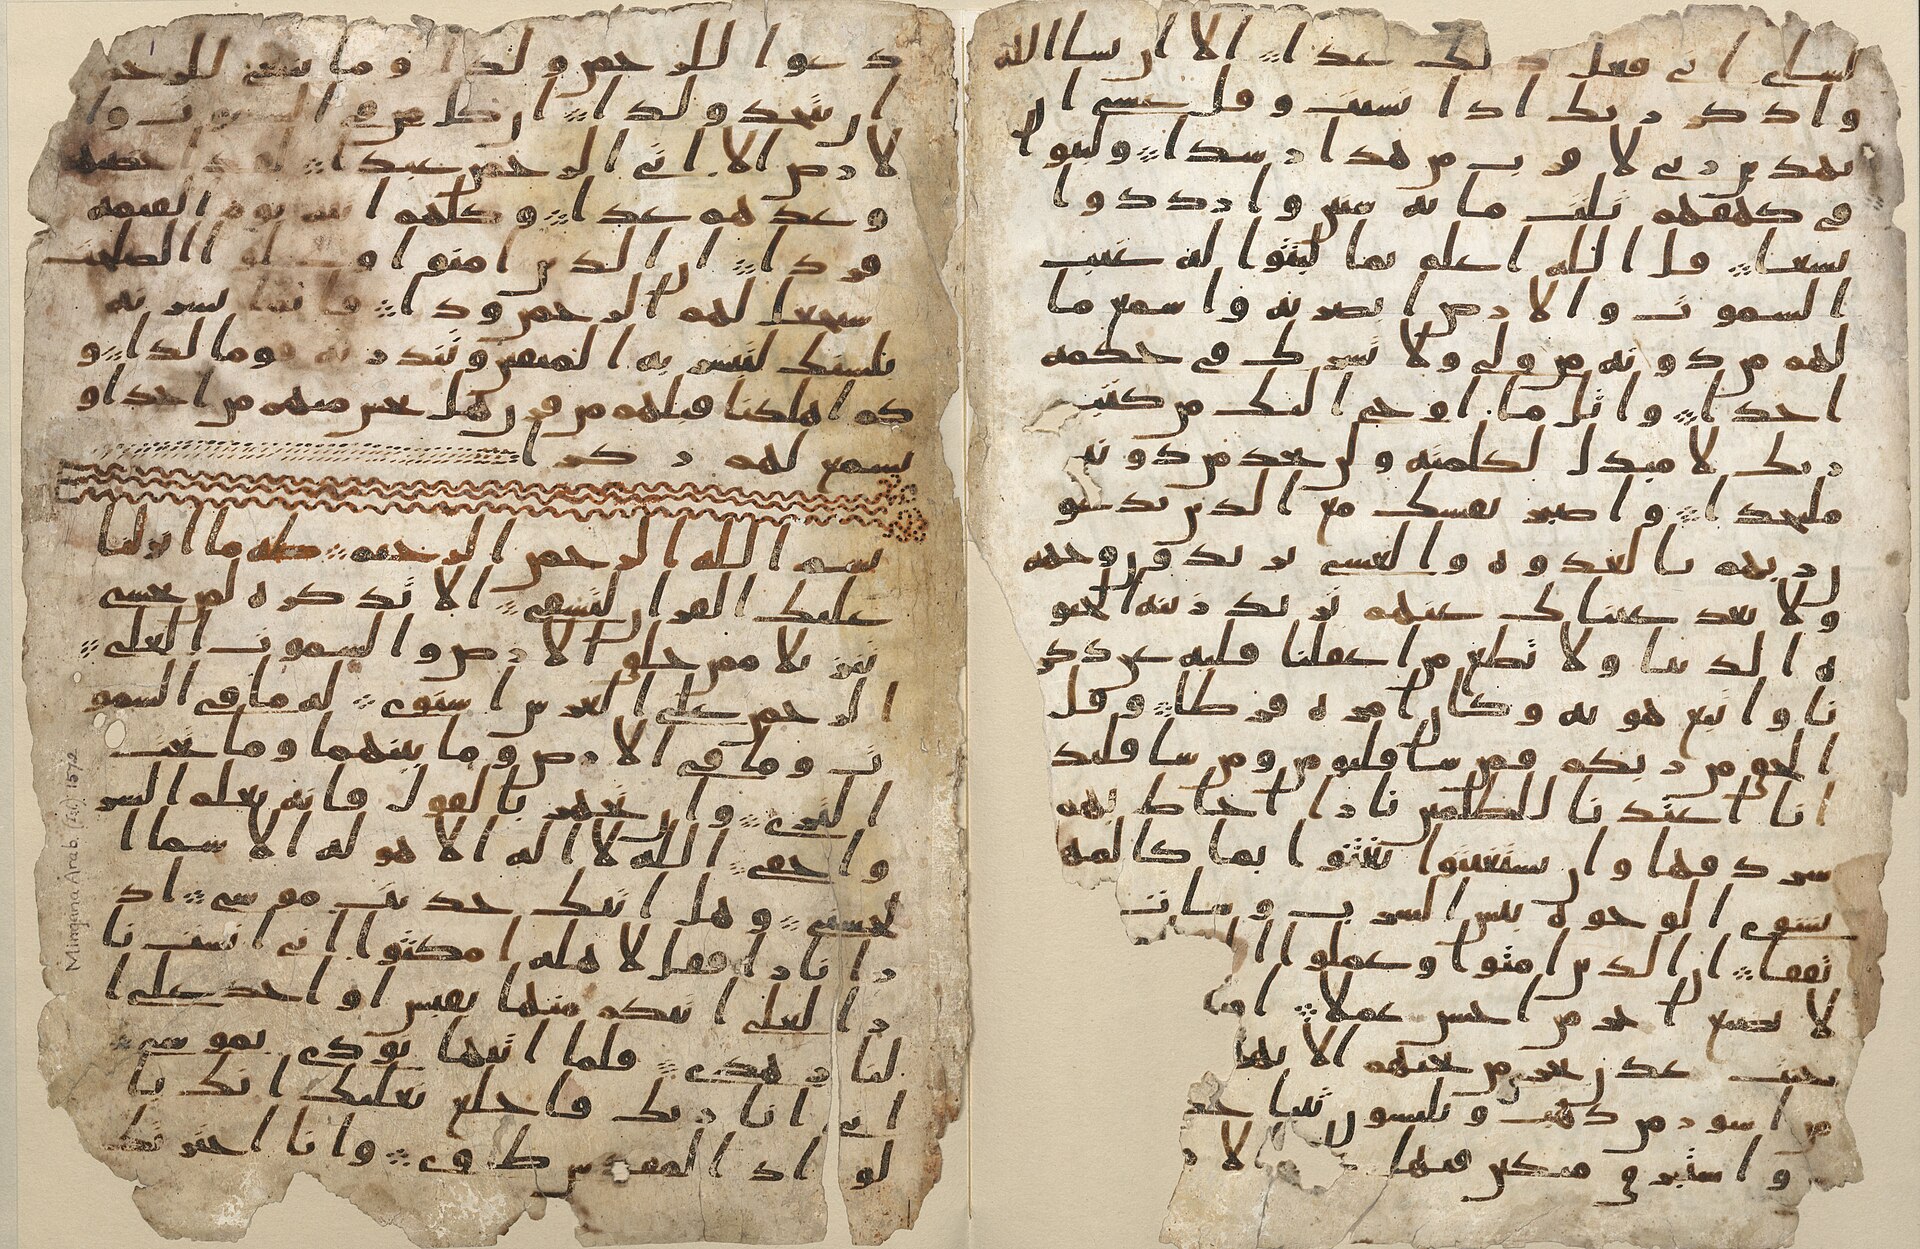 لشاي اني فعل ذلك غدا الا ان يشا الله
واذكر ربك اذا نسيت وقل عسى ان
يهدين ربي لاقرب من هذا رشدا ولبثوا
في كهفهم ثلث مايه سنين وازددوا
تسعا قل الله اعلم بما لبثوا له غيب
السموت والارض ابصر به واسمع ما
لهم من دونه من ولي ولا يشرك في حكمه
احدا واتل ما اوحي اليك من كتب
ربك لا مبدل لكلمته ولن تجد من دونه
ملتحدا واصبر نفسك مع الذين يدعو
ن ربهم بالغدوه والعشي يريدون وجهه
ولا تعد عيناك عنهم تريد زينه الحيو
ه الدنيا ولا تطع من اغفلنا قلبه عن ذكر
نا واتبع هويه وكان امره فرطا وقل
الحق من ربكم فمن شا فليومن ومن شا فليكفر
انا اعتدنا للظلمين نارا احاط بهم
سردقها وان يستغيثوا يغثوا بما كالمهل
يشوي الوجوه بئس الشرب وسات
تفقا ان الذين امنوا وعملوا ا
لا نضيع اجر من احسن عملا
جنت عدن تجري من تحتهم الانها
من اسور من ذهب ويلبسون ثيبا
واستبرق متكين فيها
دعوا للرحمن ولدا وما ينبغي للرحمن
ان يتخذ ولدا ان كل من في السموت وا
لارض الا اتي الرحمن عبدا لقد احصيهم
وعدهم عدا وكلهم اتيه يوم القيمه
فردا ان الذين امنوا وعملوا الصلحت
سيجعل لهم الرحمن ودا فانما يسرنه
بلسنك لتبشر به المتقين وتنذر به قوما لدا و
كم اهلكنا قبلهم من قرن هل تحس منهم من احد او
تسمع لهم ركزا
بسم الله الرحمن الرحيم طه ما انزلنا
عليك القران لتشقى الا تذكره لمن يخشى
تنزيلا ممن خلق الارض والسموت العلى
الرحمن على العرش استوى له ما في السمو
ت وما في الارض وما بينهما وما تحت
الثرى وان تجهر بالقول فانه يعلم السر
واخفى الله لا اله الا هو له الاسما ا
لحسنى وهل اتيك حديث موسى اذ
را نارا فقل لاهله امكثوا اني انست نا
را لعلي اتيكم منها بقبس او اجد على ا
لنار هدى فلما اتيها نودي يموسى
اني انا ربك فاخلع نعليك انك با
لواد المقدس طوى وانا اخترتك
Mingana Arab. (Isl.) 1572